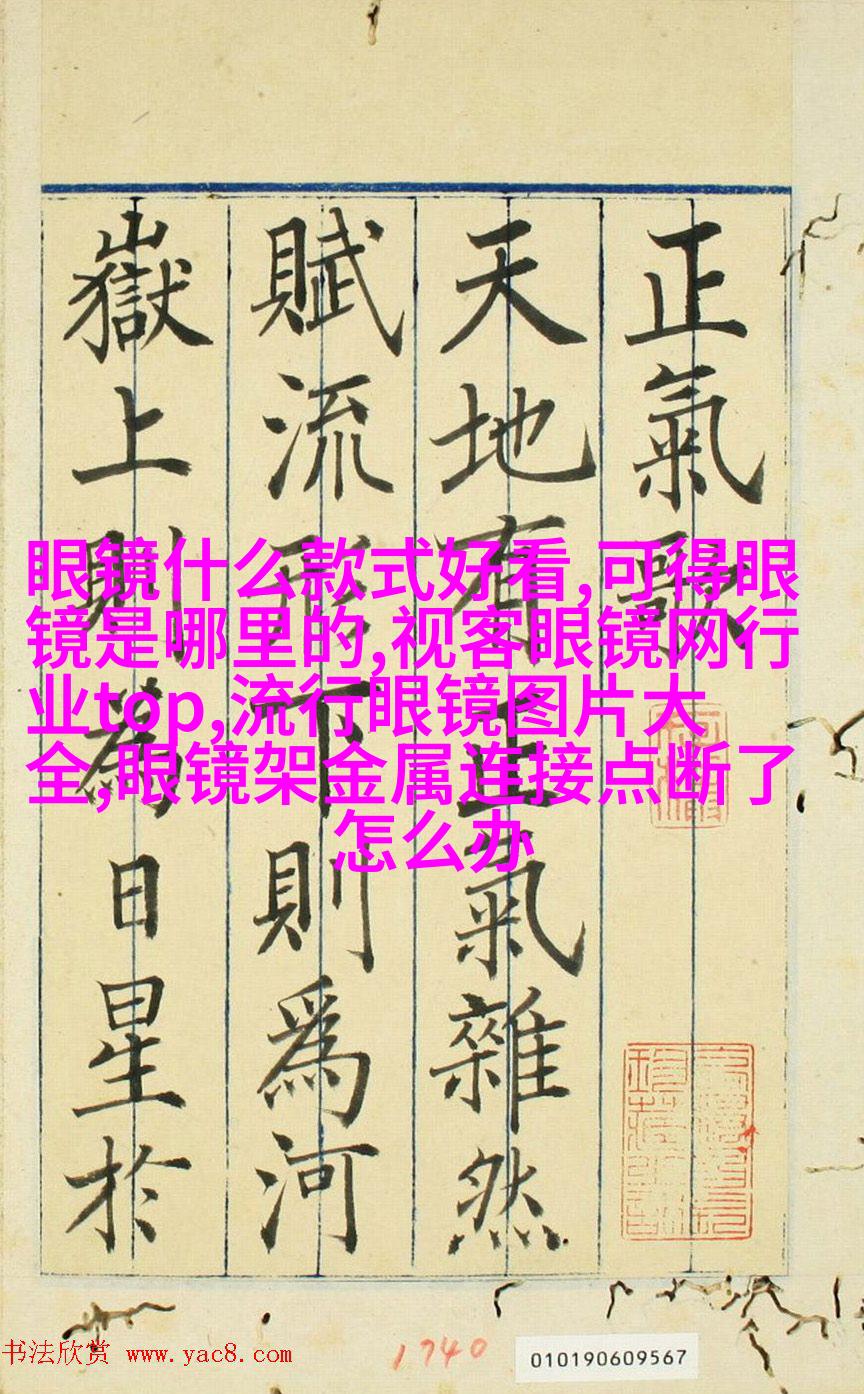 正氣歌
天地有正氣雜然
賦流形下則爲河
嶽上則為日星於
眼镜什么款式好看,可得眼
镜是哪里的,视客眼镜网行
业top,流行眼镜图片大
全,眼镜架金属连接点断了
怎么办
书法欣赏 www.yac8.com
1740
010190609567